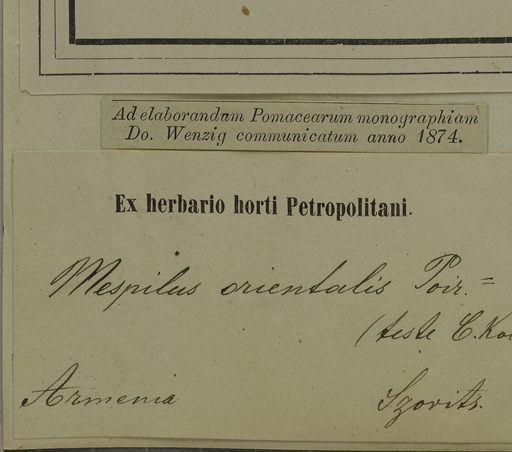 Ad elaborandum Pomacearum monographiam
Do. Wenzig communicatum anno 1874.
Ex herbario horti Petropolitani.
Mespilus orientalis Poir. =
(teste C. Ko
Armenia Szovits.